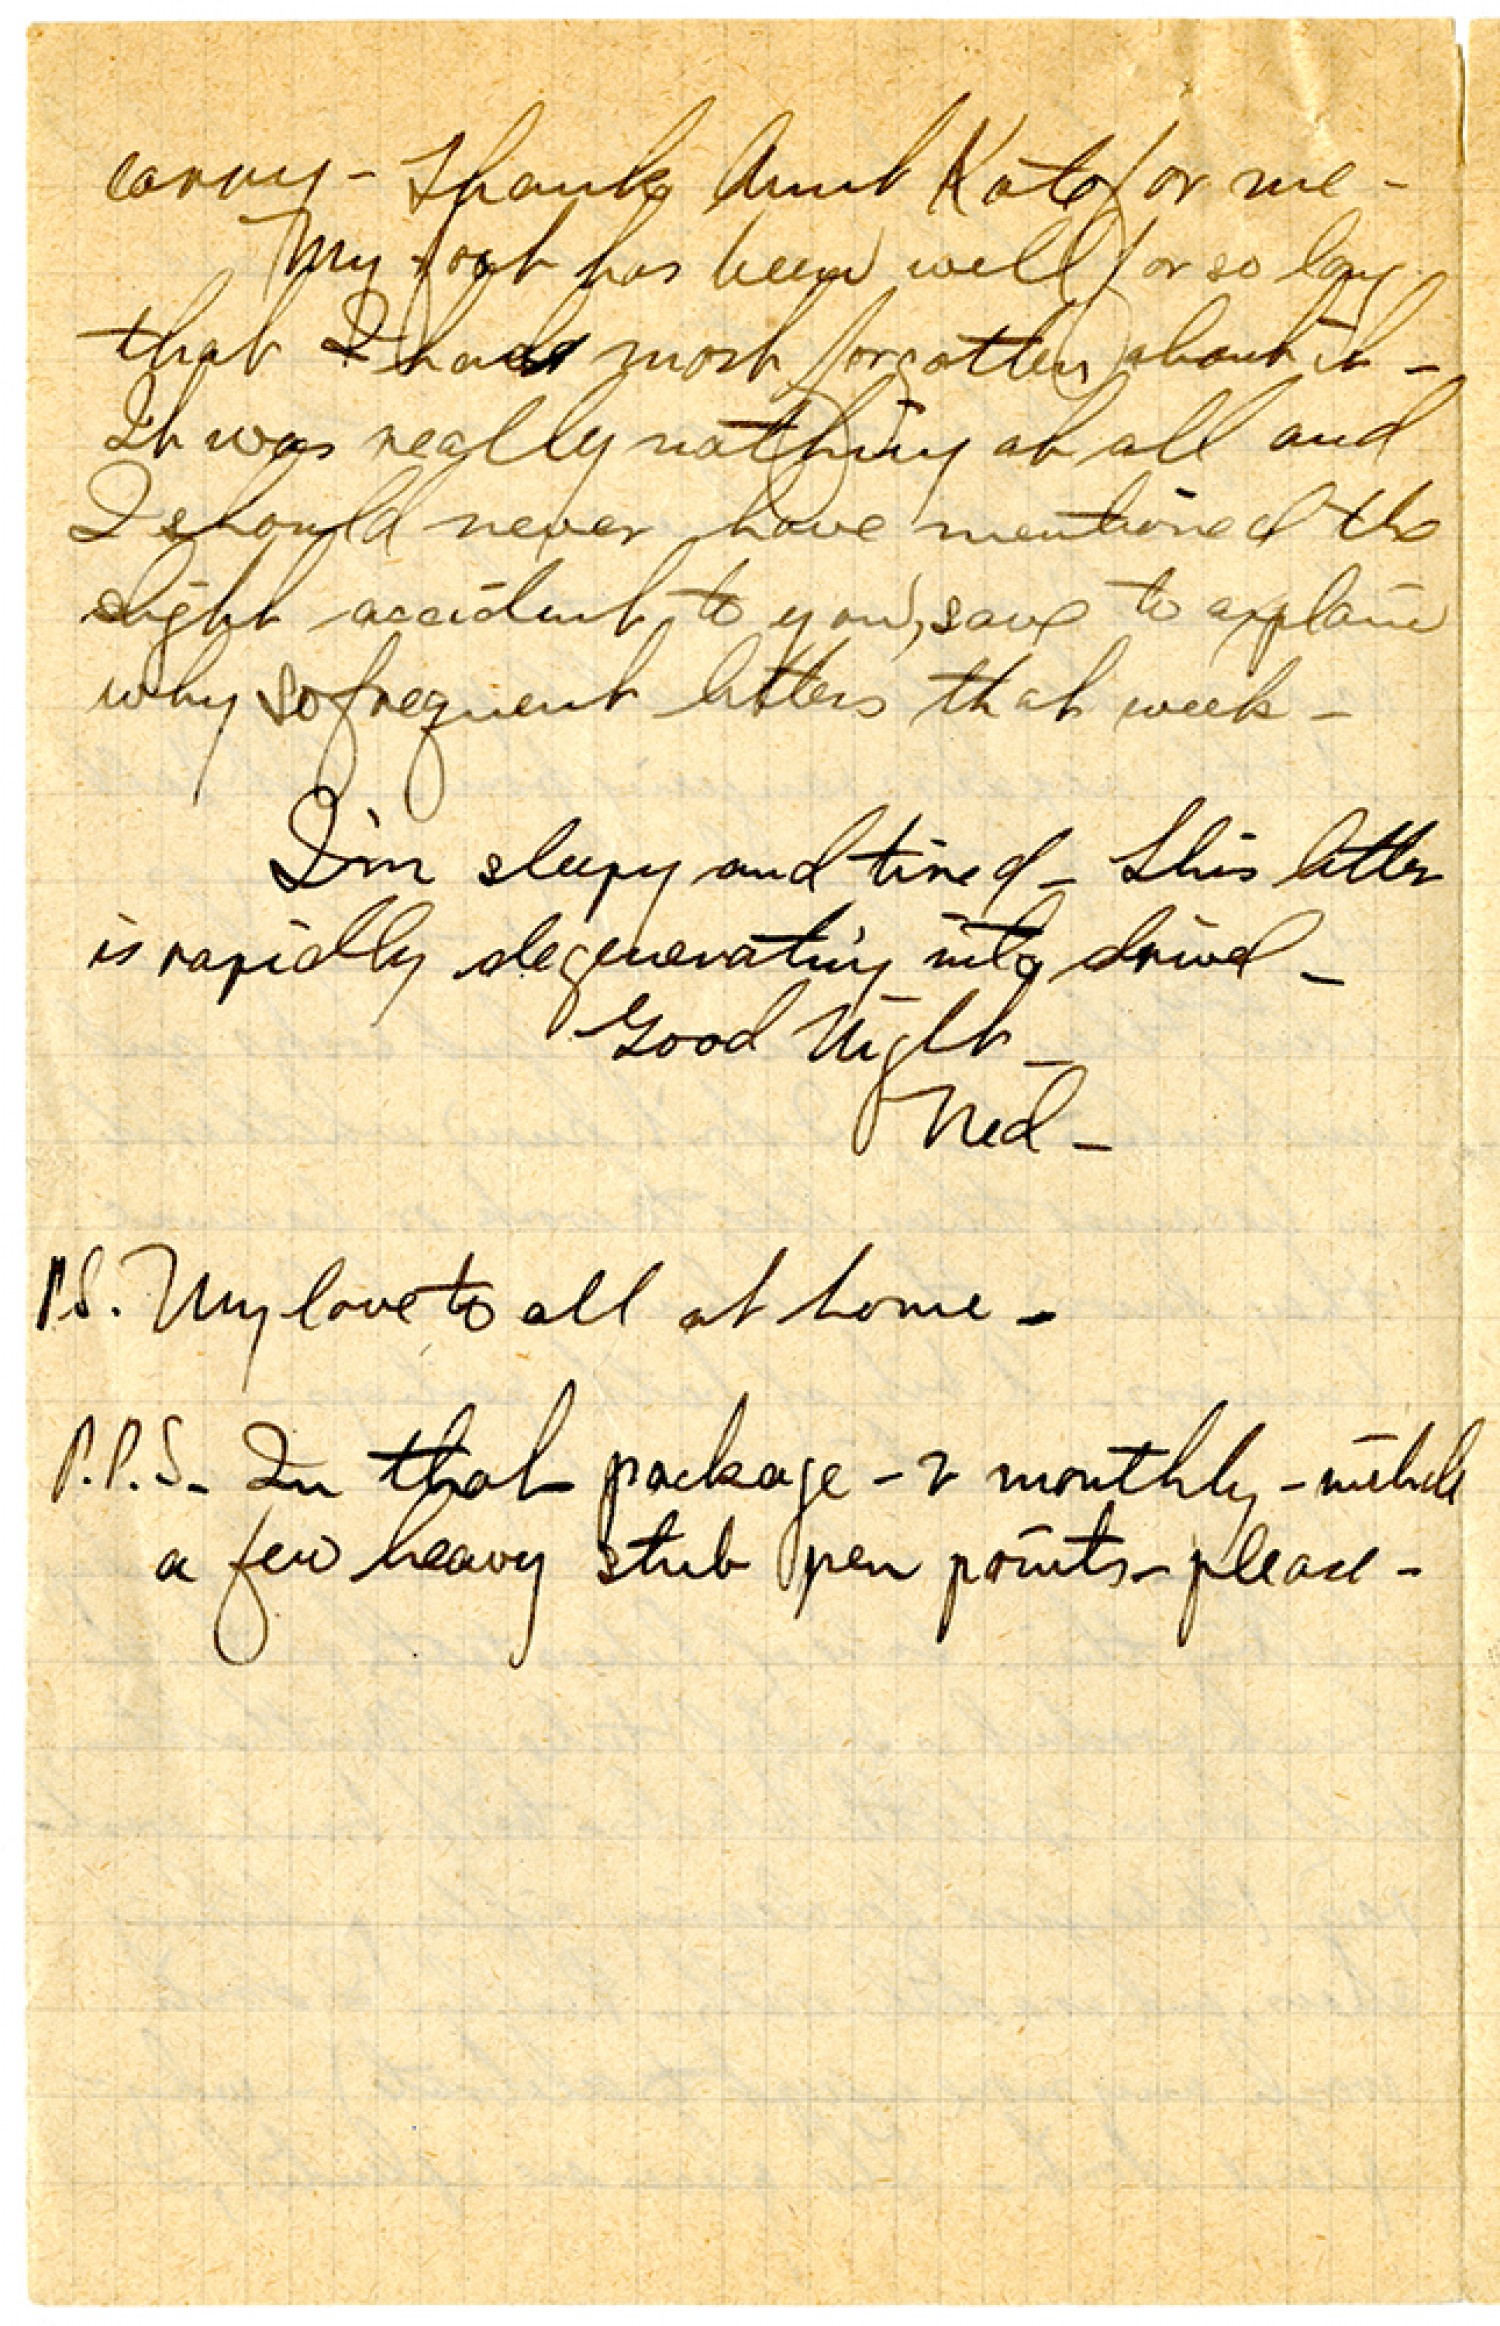 carry - Thank Aunt Kate for me -
My foot has been well for so long
that I had most forgotten about it -
It was really nothing at all and
I should never have mentioned the
slight accident to you, save to explain
why so frequent letters that week -
I'm sleepy and tired - This letter
is rapidly degenerating into drivel -
Good Night -
Ned -
P.S. My love to all at home -
P.P.S. - In that package - & monthly - include
a few heavy stub pen points - please -